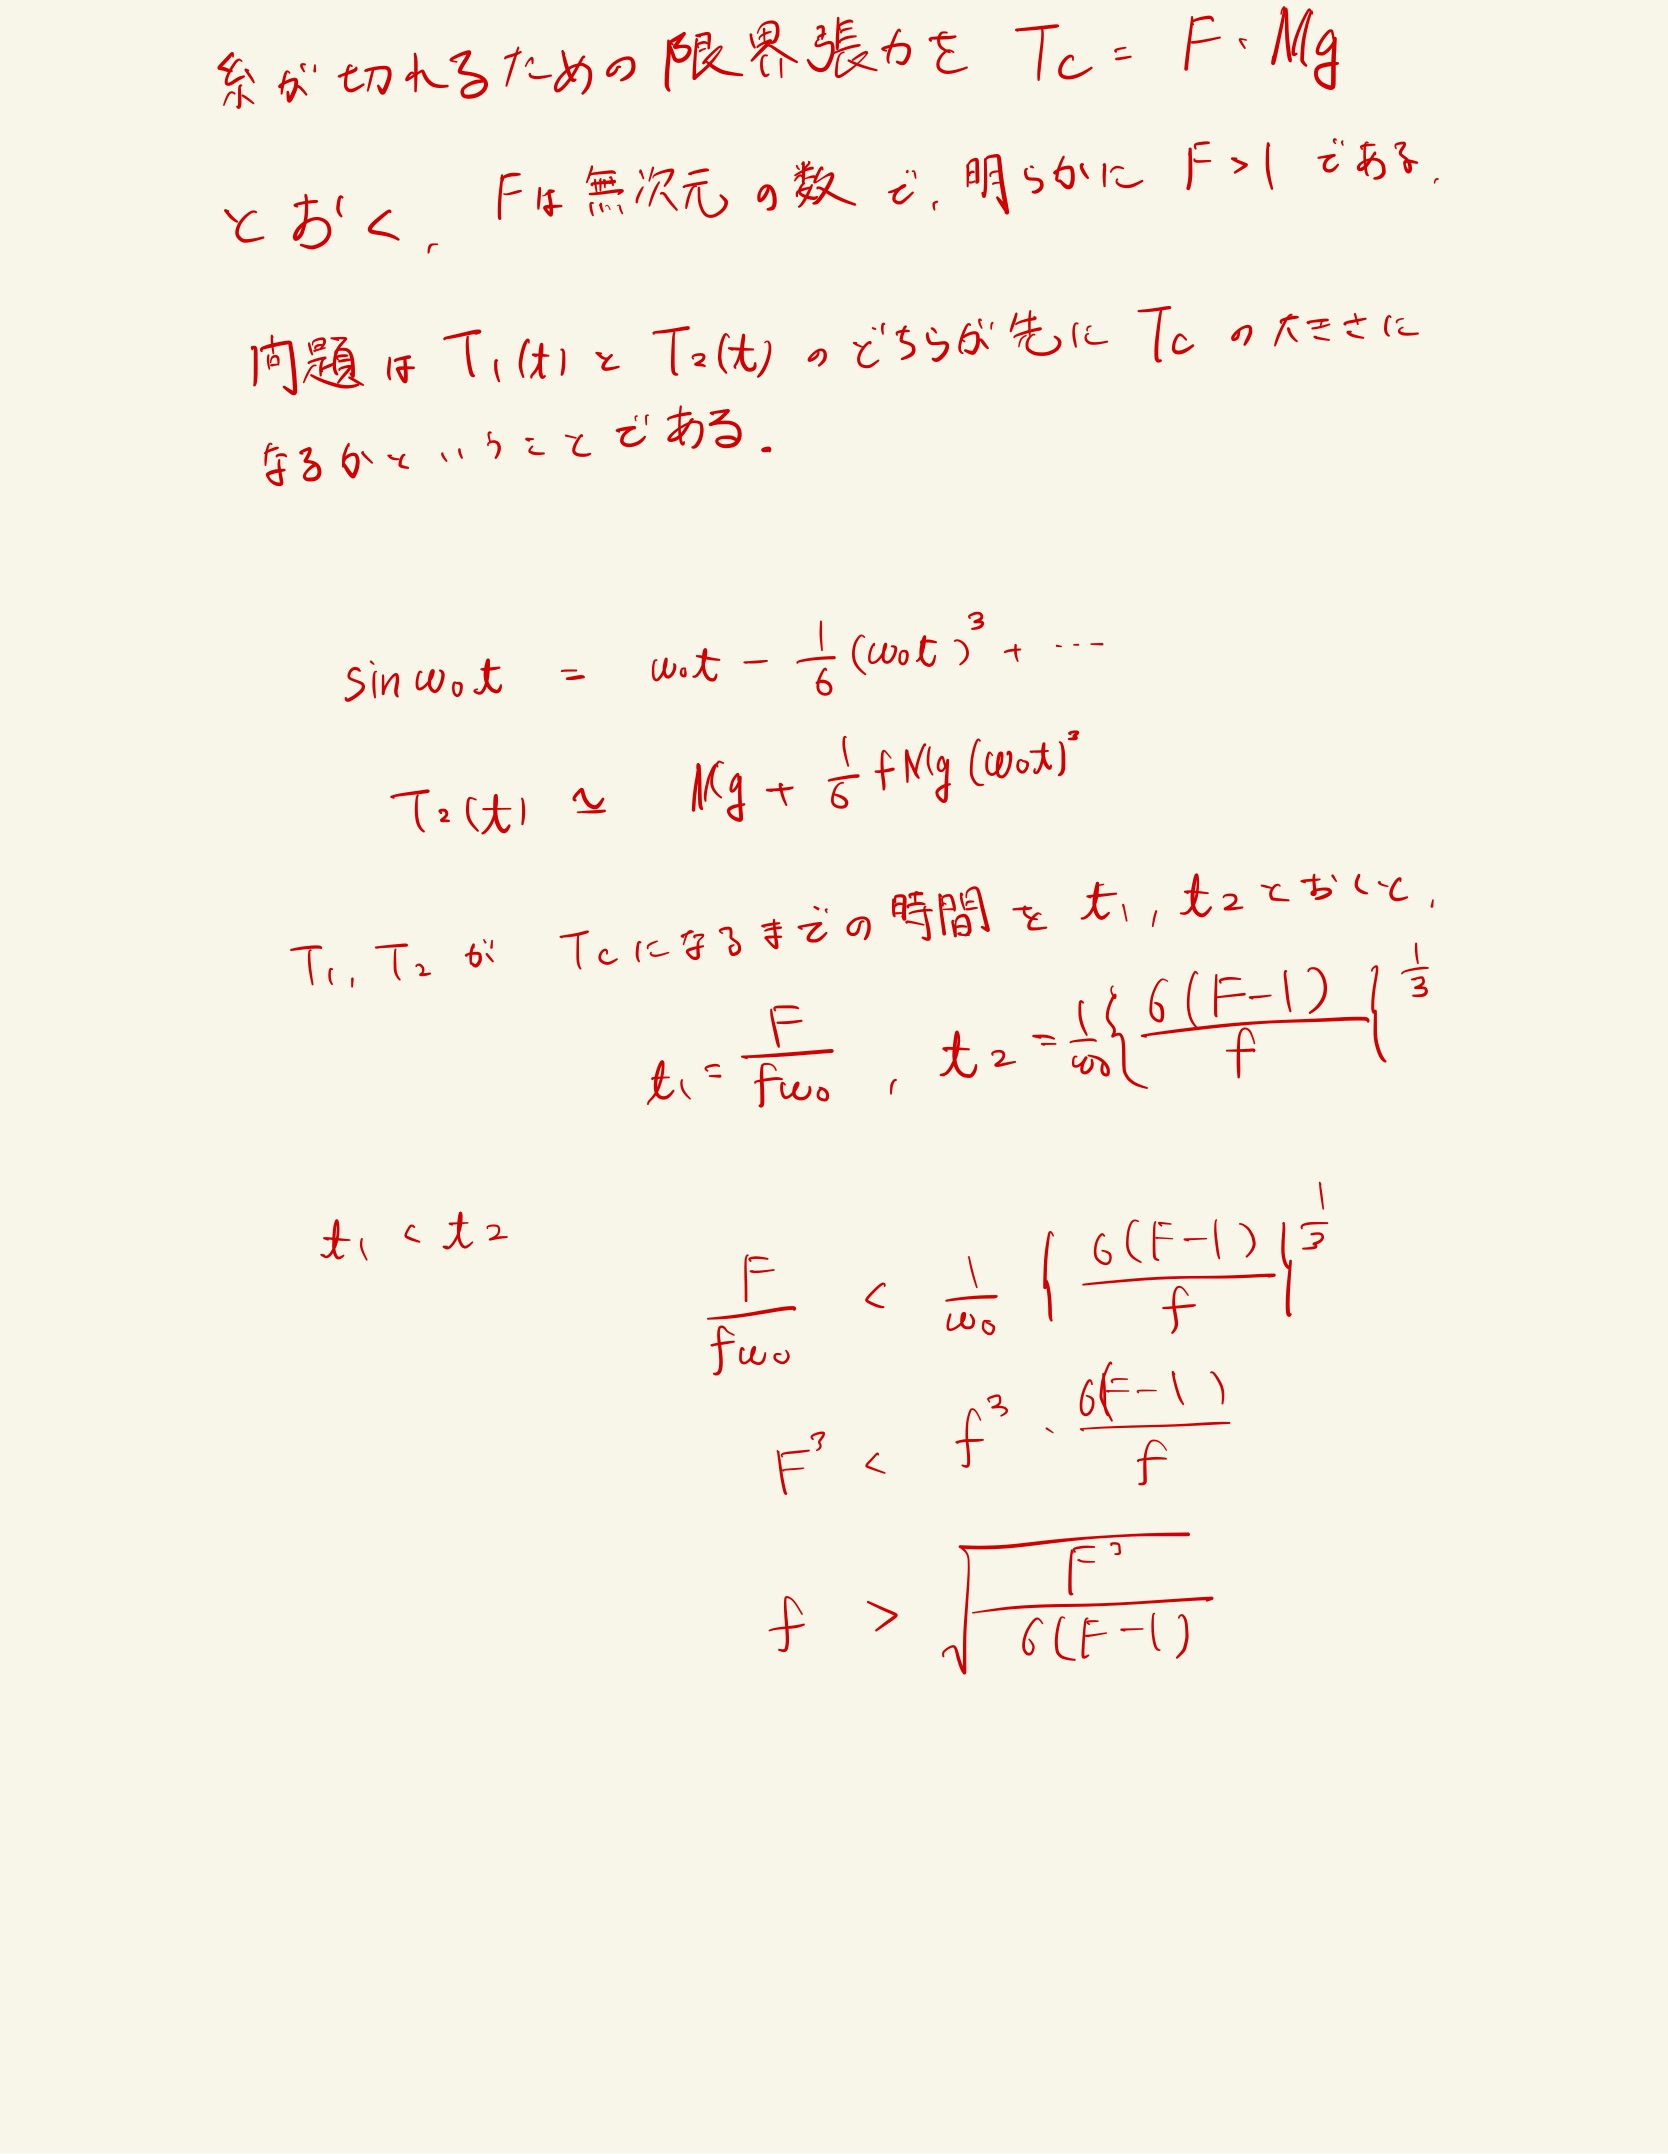 糸が切れるための限界張力を Tc = F・Mg
とおく, Fは無次元の数で, 明らかに F>1 である.
問題は T₁(t) と T₂(t) のどちらが先に Tc の大きさに
なるかということである.
sin ω₀t = ω₀t − 1/6 (ω₀t)³ + ⋯
T₂(t) ≃ Mg + 1/6 fMg (ω₀t)³
T₁, T₂ が Tc になるまでの時間を t₁, t₂ とおくと,
t₁ = F/(fω₀) , t₂ = 1/ω₀ {6(F−1)/f}^(1/3)
t₁ < t₂
F/(fω₀) < 1/ω₀ {6(F−1)/f}^(1/3)
F³ < f³ · 6(F−1)/f
f > √(F³/(6(F−1)))